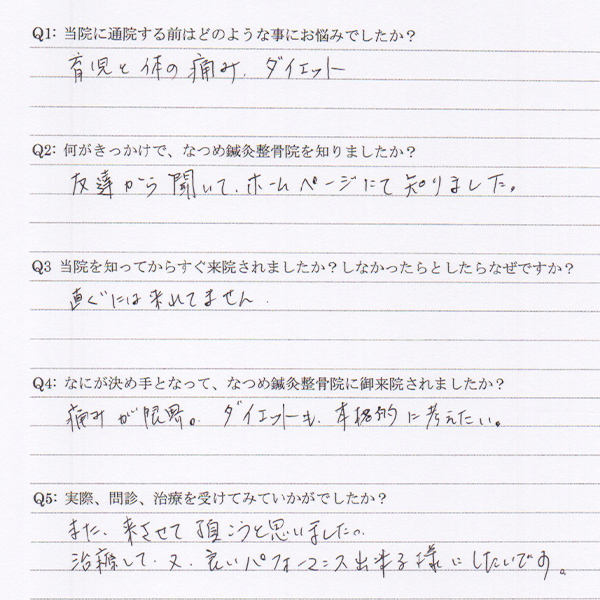 Q1: 当院に通院する前はどのような事にお悩みでしたか？
育児と体の痛み、ダイエット
Q2: 何がきっかけで、なつめ鍼灸整骨院を知りましたか？
友達から聞いて、ホームページにて知りました。
Q3 当院を知ってからすぐ来院されましたか？しなかったらとしたらなぜですか？
直ぐには来れてません.
Q4: なにが決め手となって、なつめ鍼灸整骨院に御来院されましたか？
痛みが限界。ダイエットも、本格的に考えたい。
Q5: 実際、問診、治療を受けてみていかがでしたか？
また、来させて頂こうと思いました。
治療して、又、良いパフォーマンス出来る様にしたいです。